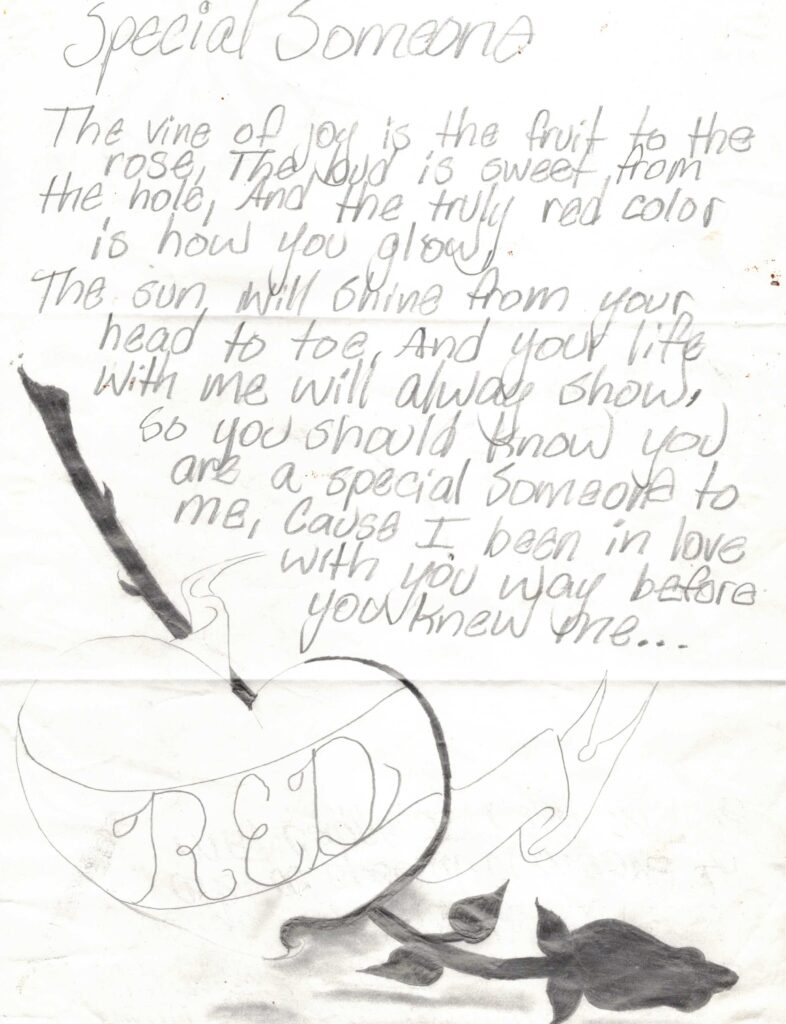 Special Someone
The vine of joy is the fruit to the
rose, The bud is sweet from
the hole, And the truly red color
is how you glow,
The sun will shine from your
head to toe, And your life
with me will alway show,
So you should know you
are a special Someone to
me, Cause I been in love
with you way before
you knew me...
RED